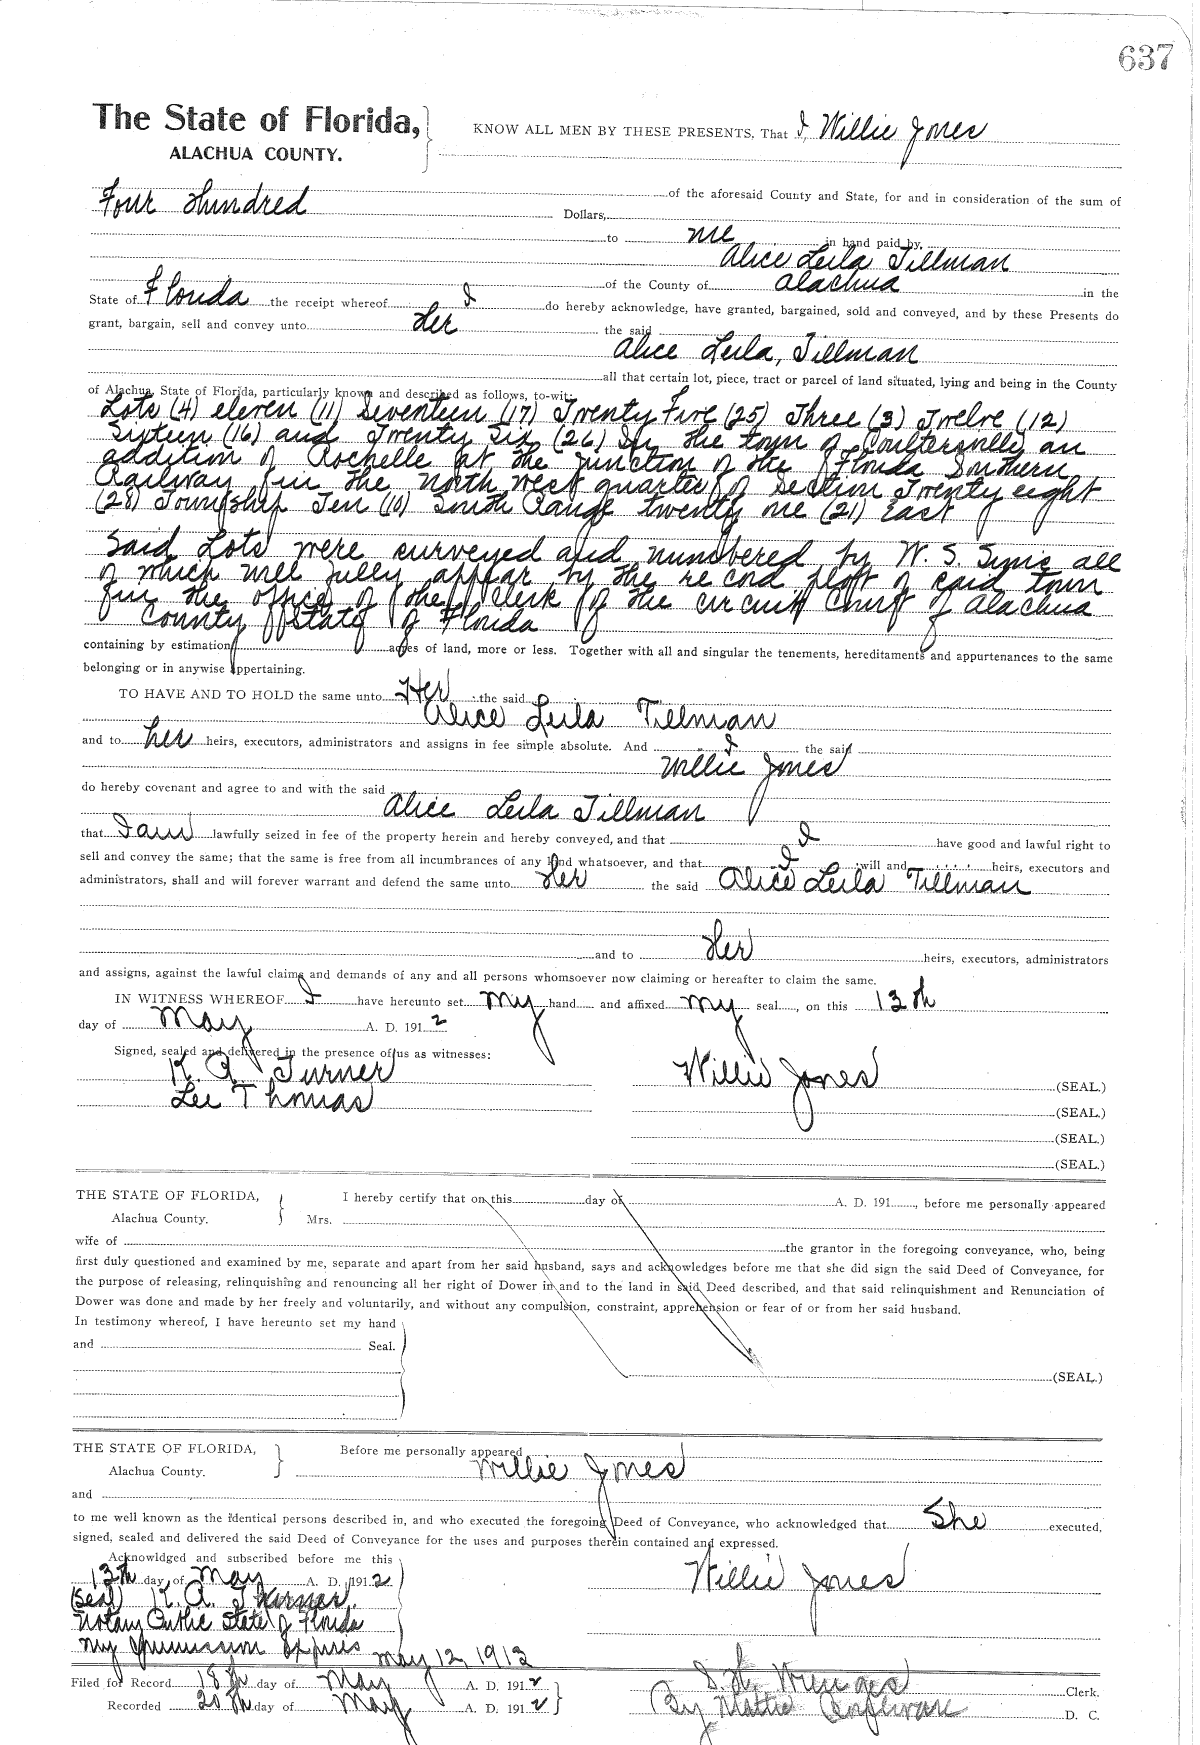 637
The State of Florida, KNOW ALL MEN BY THESE PRESENTS, That I, Willie Jones
ALACHUA COUNTY.
of the aforesaid County and State, for and in consideration of the sum of
Four Hundred Dollars,
to me in hand paid by,
Alice Leila Tillman
of the County of Alachua in the
State of Florida the receipt whereof I do hereby acknowledge, have granted, bargained, sold and conveyed, and by these Presents do
grant, bargain, sell and convey unto Her the said
Alice Leila, Tillman
all that certain lot, piece, tract or parcel of land situated, lying and being in the County
of Alachua, State of Florida, particularly known and described as follows, to-wit:
Lots (4) eleven (11) Seventeen (17) Twenty Five (25) Three (3) Twelve (12)
Sixteen (16) and Twenty Six (26) In the town of Coultersville an
addition of Rochelle at the junction of the Florida Southern
Railway in the North West quarter of Section Twenty eight
(28) Township Ten (10) South Range twenty one (21) East
Said Lots were surveyed and numbered by W. S. all
of which will fully appear by the record plott of said town
in the office of the Clerk of the circuit Court of Alachua
County State of Florida
containing by estimation acres of land, more or less. Together with all and singular the tenements, hereditaments and appurtenances to the same
belonging or in anywise appertaining.
TO HAVE AND TO HOLD the same unto Her the said
Alice Leila Tillman
and to her heirs, executors, administrators and assigns in fee simple absolute. And I the said
Willie Jones
do hereby covenant and agree to and with the said
Alice Leila Tillman
that I am lawfully seized in fee of the property herein and hereby conveyed, and that I have good and lawful right to
sell and convey the same; that the same is free from all incumbrances of any kind whatsoever, and that I will and heirs, executors and
administrators, shall and will forever warrant and defend the same unto Her the said Alice Leila Tillman
and to Her heirs, executors, administrators
and assigns, against the lawful claims and demands of any and all persons whomsoever now claiming or hereafter to claim the same.
IN WITNESS WHEREOF I have hereunto set my hand and affixed my seal, on this 13th
day of May A. D. 1912
Signed, sealed and delivered in the presence of us as witnesses:
K. A. Turner Willie Jones (SEAL.)
Lee Thomas (SEAL.)
(SEAL.)
(SEAL.)
THE STATE OF FLORIDA, I hereby certify that on this day of A. D. 191, before me personally appeared
Alachua County. Mrs.
wife of the grantor in the foregoing conveyance, who, being
first duly questioned and examined by me, separate and apart from her said husband, says and acknowledges before me that she did sign the said Deed of Conveyance, for
the purpose of releasing, relinquishing and renouncing all her right of Dower in and to the land in said Deed described, and that said relinquishment and Renunciation of
Dower was done and made by her freely and voluntarily, and without any compulsion, constraint, apprehension or fear of or from her said husband.
In testimony whereof, I have hereunto set my hand
and Seal.
(SEAL.)
THE STATE OF FLORIDA, Before me personally appeared
Alachua County. Willie Jones
and
to me well known as the identical persons described in, and who executed the foregoing Deed of Conveyance, who acknowledged that She executed,
signed, sealed and delivered the said Deed of Conveyance for the uses and purposes therein contained and expressed.
Acknowldged and subscribed before me this
13th day of May A. D. 1912 Willie Jones
(Seal) K. A. Turner.
Notary Public State of Florida
My Commission Expires May 12, 1913
Filed for Record 18th day of May A. D. 1912 Clerk.
Recorded 20th day of May A. D. 1912 By Mattie D. C.